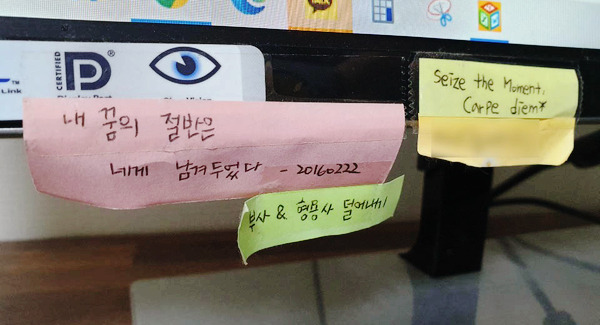 TALK
CERTIFIED
DP
Link
내 꿈의 절반은
네게 남겨두었다 - 20160222
부사 & 형용사 덜어내기
Seize the Moment,
Carpe diem*